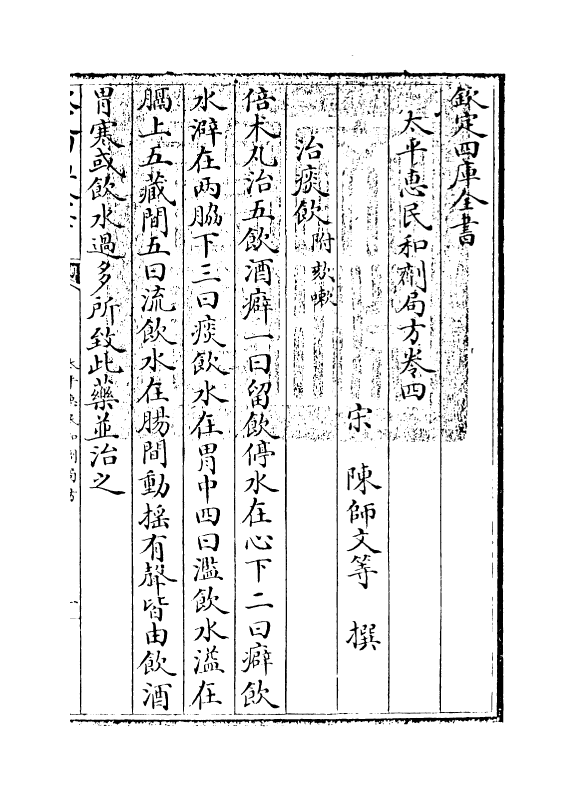 欽定四庫全書
太平惠民和劑局方卷四
宋 陳師文等 撰
治痰飲附欬嗽
倍术丸治五飲酒癖一曰留飲停水在心下二曰癖飲
水澼在兩脇下三曰痰飲水在胃中四曰濫飲水溢在
膈上五藏間五曰流飲水在腸間動揺有聲皆由飲酒
胃寒或飲水過多所致此藥並治之